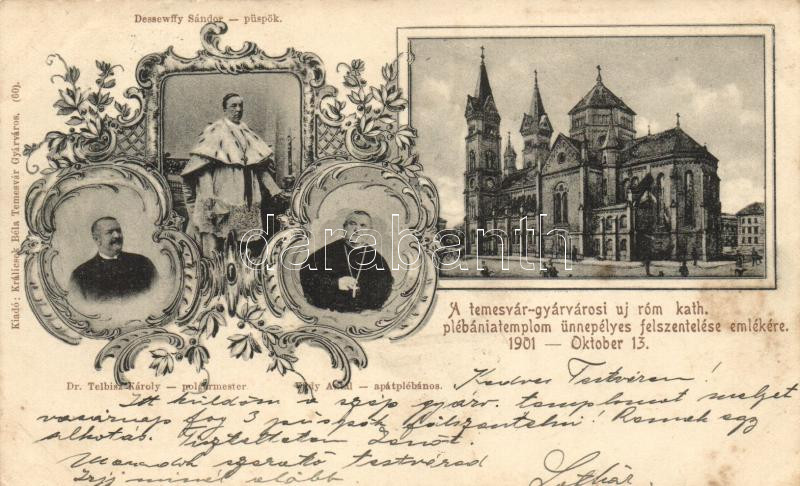 Dessewffy Sándor — püspök.
Kiadó: Králicsek Béla Temesvár Gyárváros. (60).
darabanth
A temesvár-gyárvárosi uj róm kath.
plébániatemplom ünnepélyes felszentelése emlékére.
1901 — Oktober 13.
Dr. Telbisz Károly — polgármester
— apátplébános.
Kedves Testvérem!
Itt küldöm a szép gyárv. templomot melyet
vasárnap fog 3 püspök fölszentelni! Remek egy
alkotás. Tiszteltetem Jenőt.
Maradok szerető testvéred
Irj minél előbb.